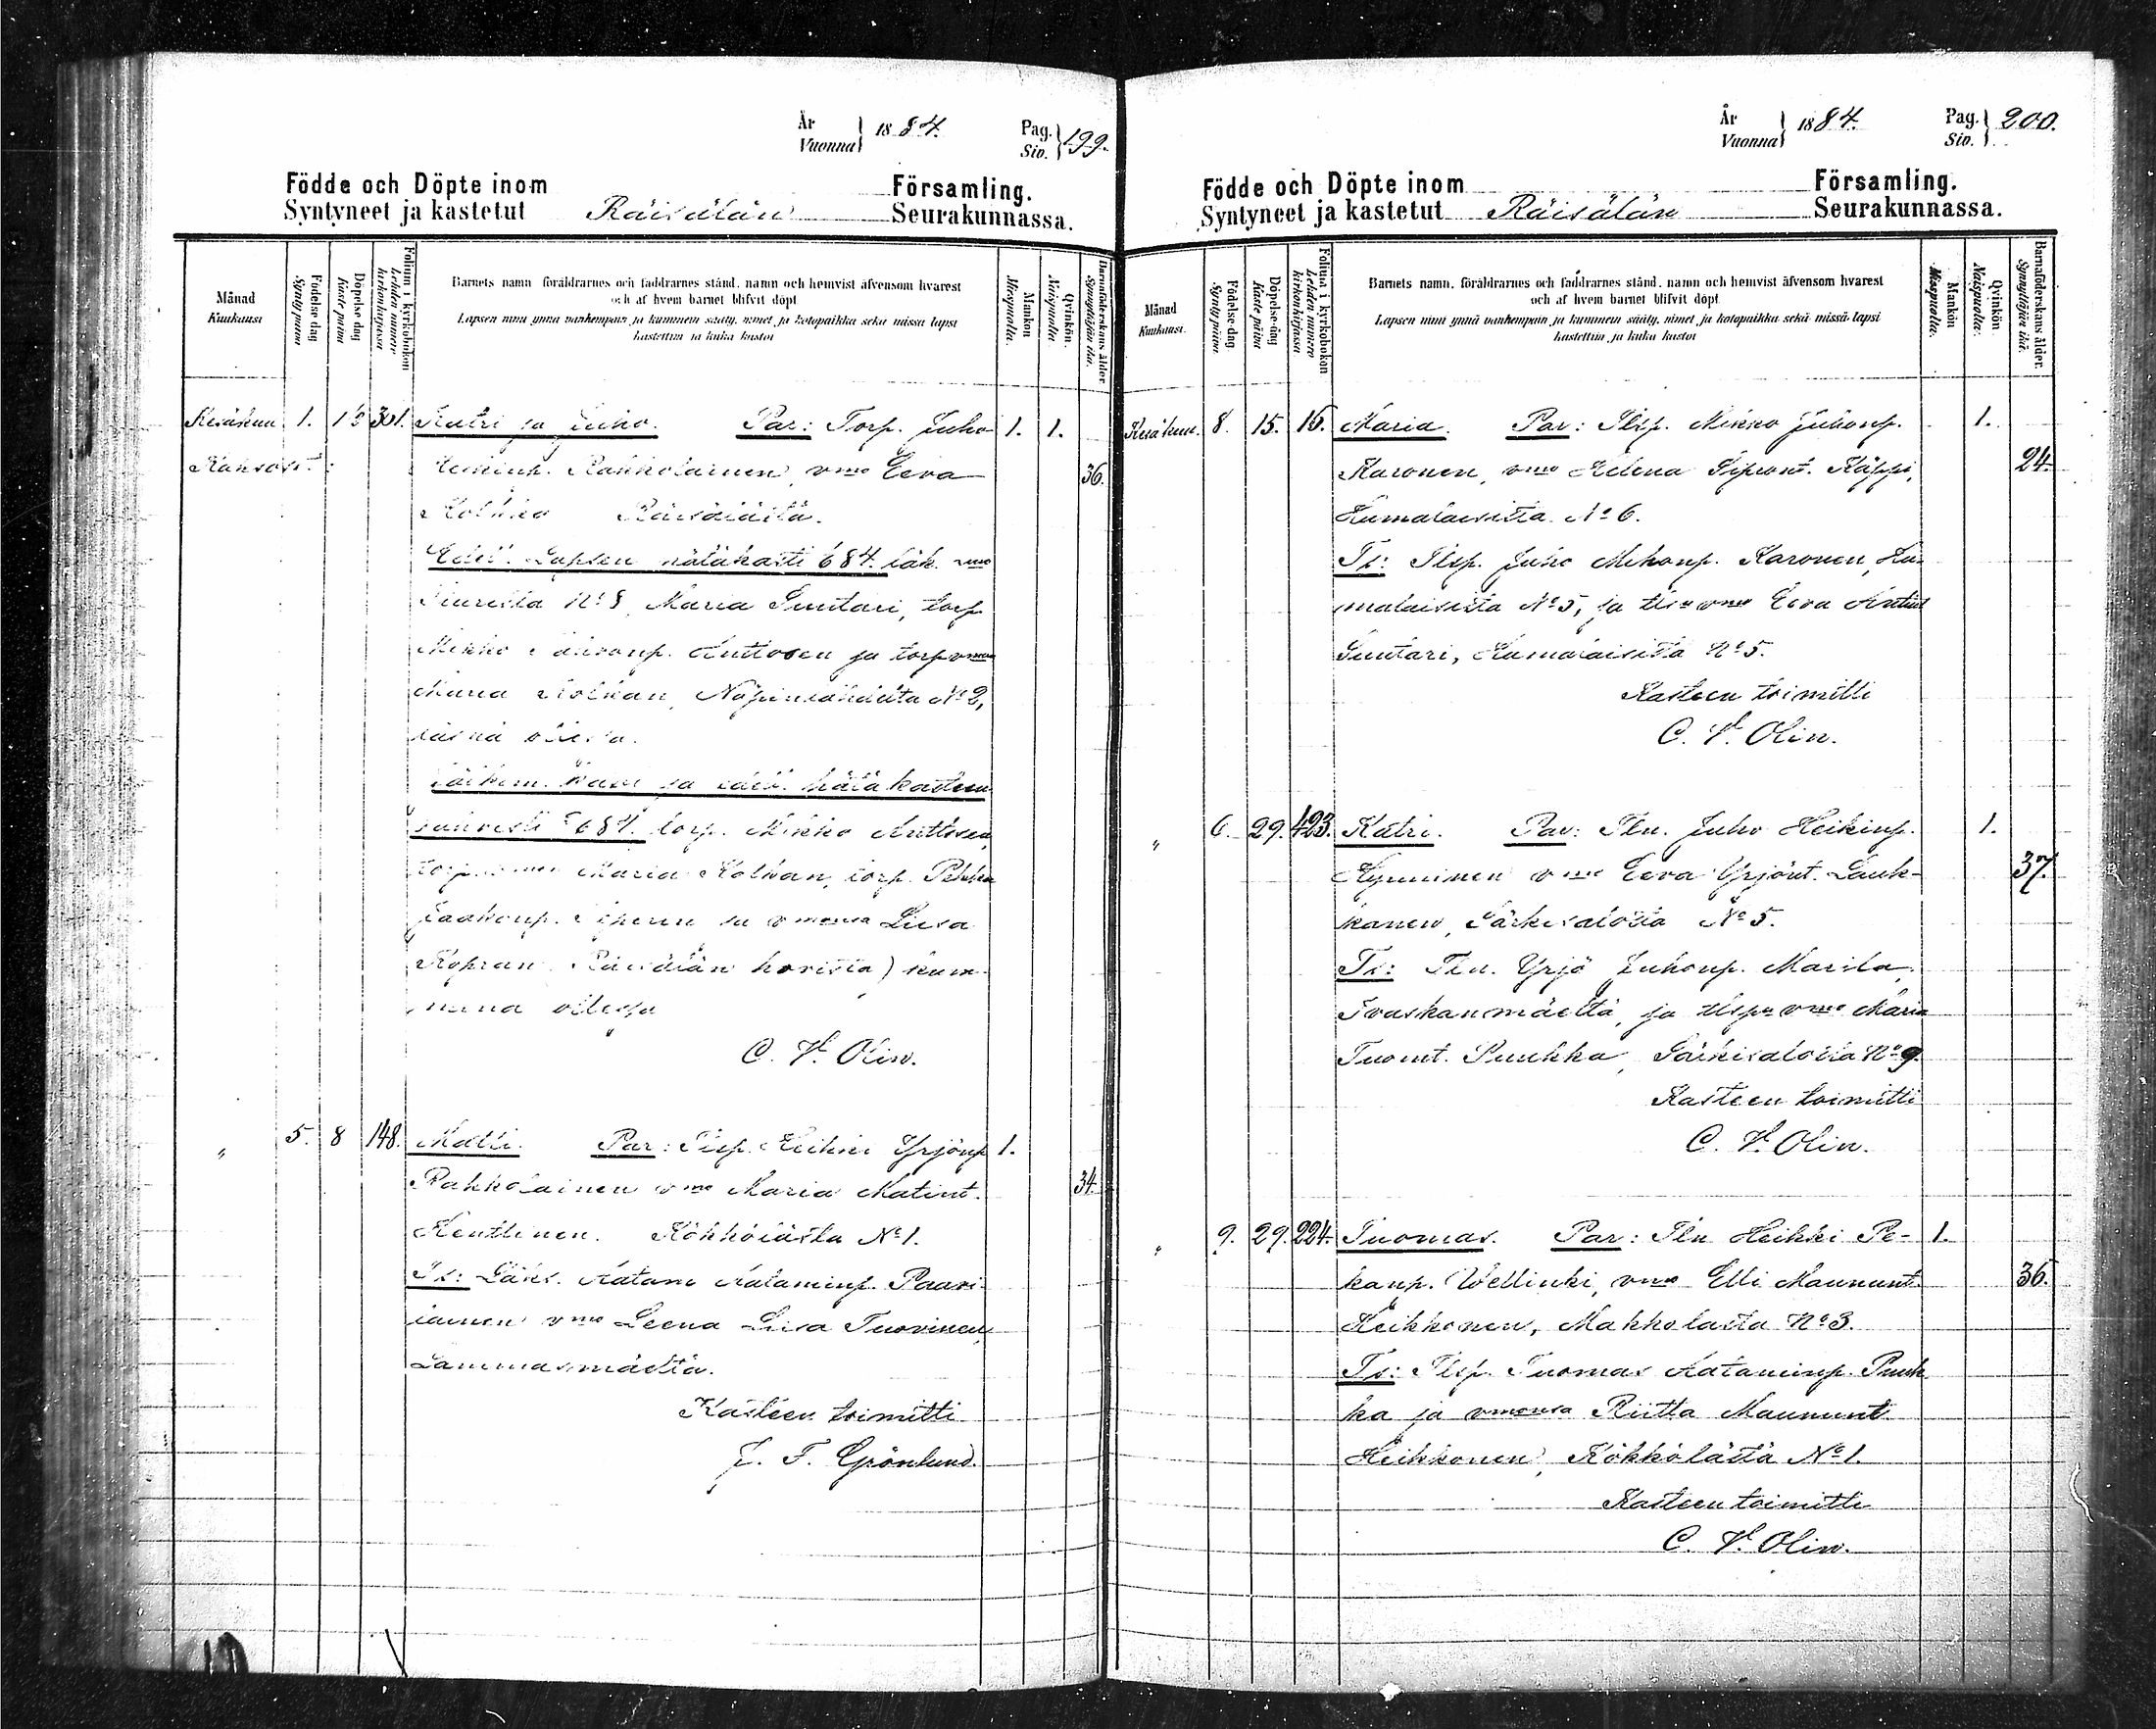 År
Vuonna } 1884.
Pag.
Siv. } 199.
Födde och Döpte inom Församling.
Syntyneet ja kastetut Räisälän Seurakunnassa.
Månad
Kuukausi
Födelse dag
Synty päivä
Döpelse dag
Kaste päivä
Folium i kyrkobokon
Lehden numero
kirkonkirjassa
Barnets namn föräldrarnes och faddrarnes stånd, namn och hemvist äfvensom hvarest
och af hvem barnet blifvit döpt
Lapsen nimi ynnä vanhempain ja kummein sääty, nimet ja kotopaikka sekä missä lapsi
kastettiin ja kuka kastoi
Mankön
Miespuolia.
Qvinkön
Naispuolia
Barnaföderskans ålder
Synnyttäjän ikä.
Kesäkuu 1. 15 301. Katri ja Juho. Par: Torp. Juho 1. 1.
Kaksoset: Heikinp. Rahkolainen, vmo Eeva 36.
Kolkko Räisälästä.
Lapsen hätäkasti 684.
No 8, Maria Suutari, torp.
Mikko Anttosen ja torp vmon
Maria Kolkan, No 2,
läsnä ollessa.
hätä kasteen
684. torp. Mikko Anttosen,
Maria Kolkan, torp. Pekka
Jaakonp. ja vmonsa Liisa
Kopran Räisälän kum-
meina ollessa
C. V. Olin.
„ 5. 8 148. Matti. Par: Tlsp. Heikki Yrjönp 1.
Rahkolainen vmo Maria Matint. 34.
Henttinen. Kökkölästä No 1.
Ts: Aatami Aataminp. Paavi-
lainen vmo Leena Liisa Tuovinen,
Lammasmäeltä.
Kasteen toimitti
J. F. Grönlund.
År
Vuonna } 1884.
Pag.
Siv. } 200.
Födde och Döpte inom Församling.
Syntyneet ja kastetut Räisälän Seurakunnassa.
Månad
Kuukausi.
Födelse-dag
Synty päivä.
Döpelse-dag
Kaste päivä
Folium i kyrkobokon
Lehden numero
kirkonkirjassa
Barnets namn, föräldrarnes och faddrarnes stånd, namn och hemvist äfvensom hvarest
och af hvem barnet blifvit döpt
Lapsen nimi ynnä vanhempain ja kummein sääty, nimet ja kotopaikka sekä missä lapsi
kastettiin ja kuka kastoi
Mankön
Miespuolia.
Qvinkön
Naispuolia.
Barnaföderskans ålder.
Synnyttäjän ikä.
Kesäkuu. 8. 15. 16. Maria. Par: Tlsp. Mikko Juhonp. 1.
Karonen, vmo Helena Sipront. Käppi, 24.
Humalaisista No 6.
Ts: Tlsp. Juho Mikonp. Karonen, Hu-
malaisista No 5, ja vmo Eeva Antint
Suutari, Humalaisista No 5.
Kasteen toimitti
C. V. Olin.
„ 6. 29. 423. Katri. Par: Tln. Juho Heikinp. 1.
Hynninen vmo Eeva Yrjönt. Lauk- 37.
kanen, Särkisalosta No 5.
Ts: Tln. Yrjö Juhonp. Marila,
Ivaskanmäeltä, ja tlspn vmo Maria
Tuomt. Puukka, Särkisalosta No 9.
Kasteen toimitti
C. V. Olin.
„ 9. 29. 224. Tuomas. Par: Tln Heikki Pe- 1.
kanp. Wellinki, vmo Elli Maununt. 36.
Heikkonen, Makkolasta No 3.
Ts: Tlsp. Tuomas Aataminp. Puuk
ka ja vmonsa Riitta Maununt
Heikkonen, Kökkölästä No 1.
Kasteen toimitti
C. V. Olin.